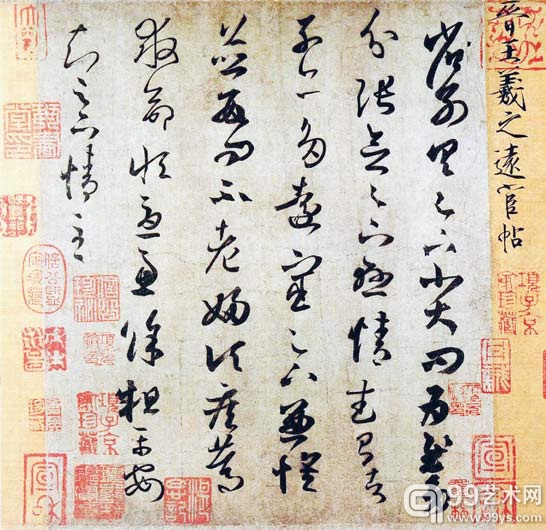 晉王羲之遠宦帖
省別具足下小大問為慰多
分張念足下懸情武昌諸
子亦多遠宦足下兼懷
並數問不老婦頃疾篤
救命恒憂慮餘粗平安
知足下情至
項子京家珍藏
項子京家珍藏
99艺术网
www.99ys.com